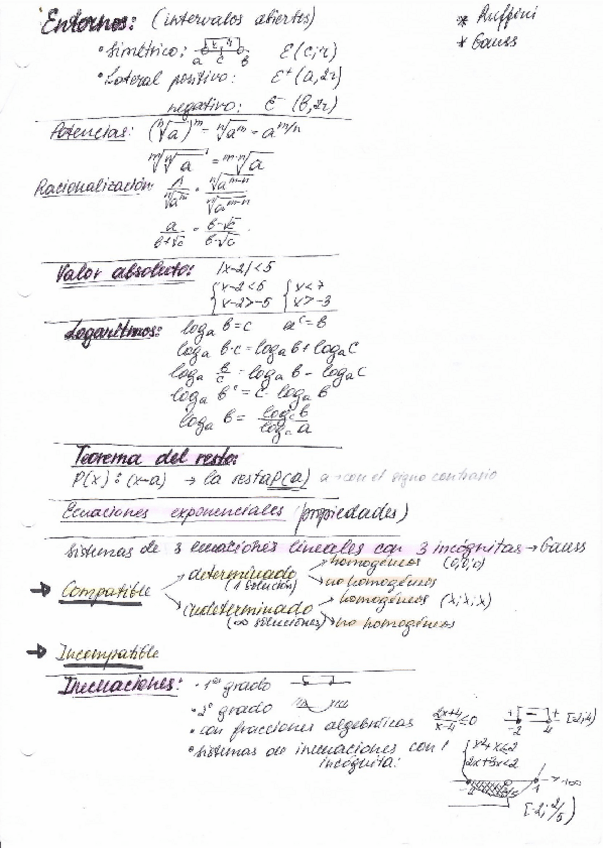 Entornos: (intervalos abiertos)
* Ruffini
* Gauss
• Simétrico: a c b E(c;r)
• Lateral positivo: E⁺(a,2r)
negativo: E⁻(b,2r)
Potencias: (ⁿ√a)ᵐ = ⁿ√aᵐ = a^m/n
ᵐ√ⁿ√a = ᵐ·ⁿ√a
Racionalización:
Valor absoluto: |x-2|<5
{x-2<5 {x<7
{x-2>-5 {x>-3
Logaritmos: logₐ b=c aᶜ=b
logₐ b·c = logₐ b + logₐ c
logₐ b/c = logₐ b - logₐ c
logₐ bᶜ = c · logₐ b
logₐ b =
Teorema del resto:
P(x) : (x-a) → la resta P(a) a → con el signo contrario
Ecuaciones exponenciales (propiedades)
Sistemas de 3 ecuaciones lineales con 3 incógnitas → Gauss
→ Compatible
determinado (1 solución)
homogéneos (0,0,0)
no homogéneos
indeterminado (∞ soluciones)
homogéneos (x,x,x)
no homogéneos
→ Incompatible
Inecuaciones: • 1er grado
• 2º grado
• con fracciones algebraicas 2x+4/x-4 ≤0 + [ - ] + -2 4 [-2;4)
• sistemas de inecuaciones con 1
incógnita:
[-2; 2/5)